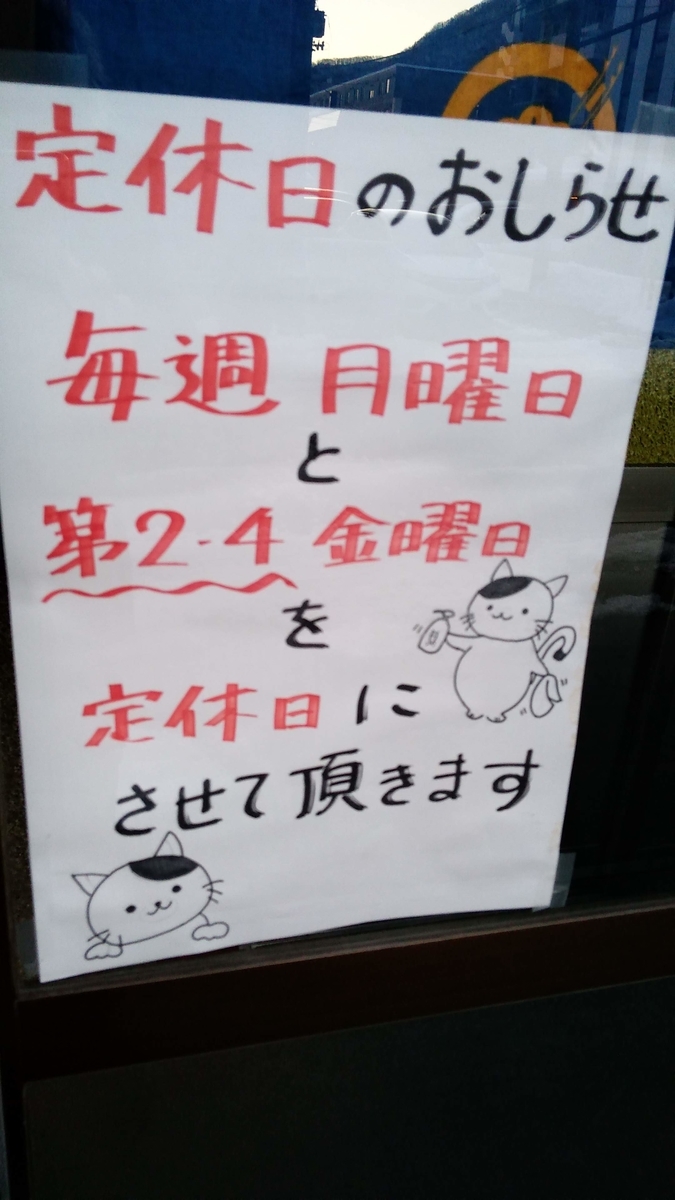 定休日のおしらせ
毎週 月曜日
と
第2・4 金曜日
を
定休日に
させて頂きます